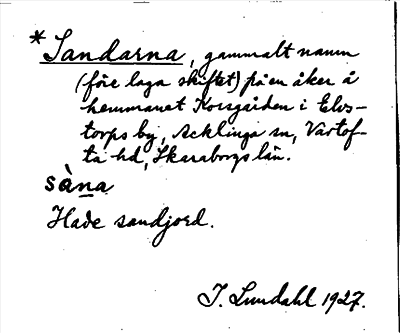 *Sandarna, gammalt namn
(före laga skiftet) på en åker å
hemmanet Korsgården i Elvs-
torps by, Acklinga sn, Vartof-
ta hd, Skaraborgs län.
sàna
Hade sandjord.
J. Lundahl 1927.